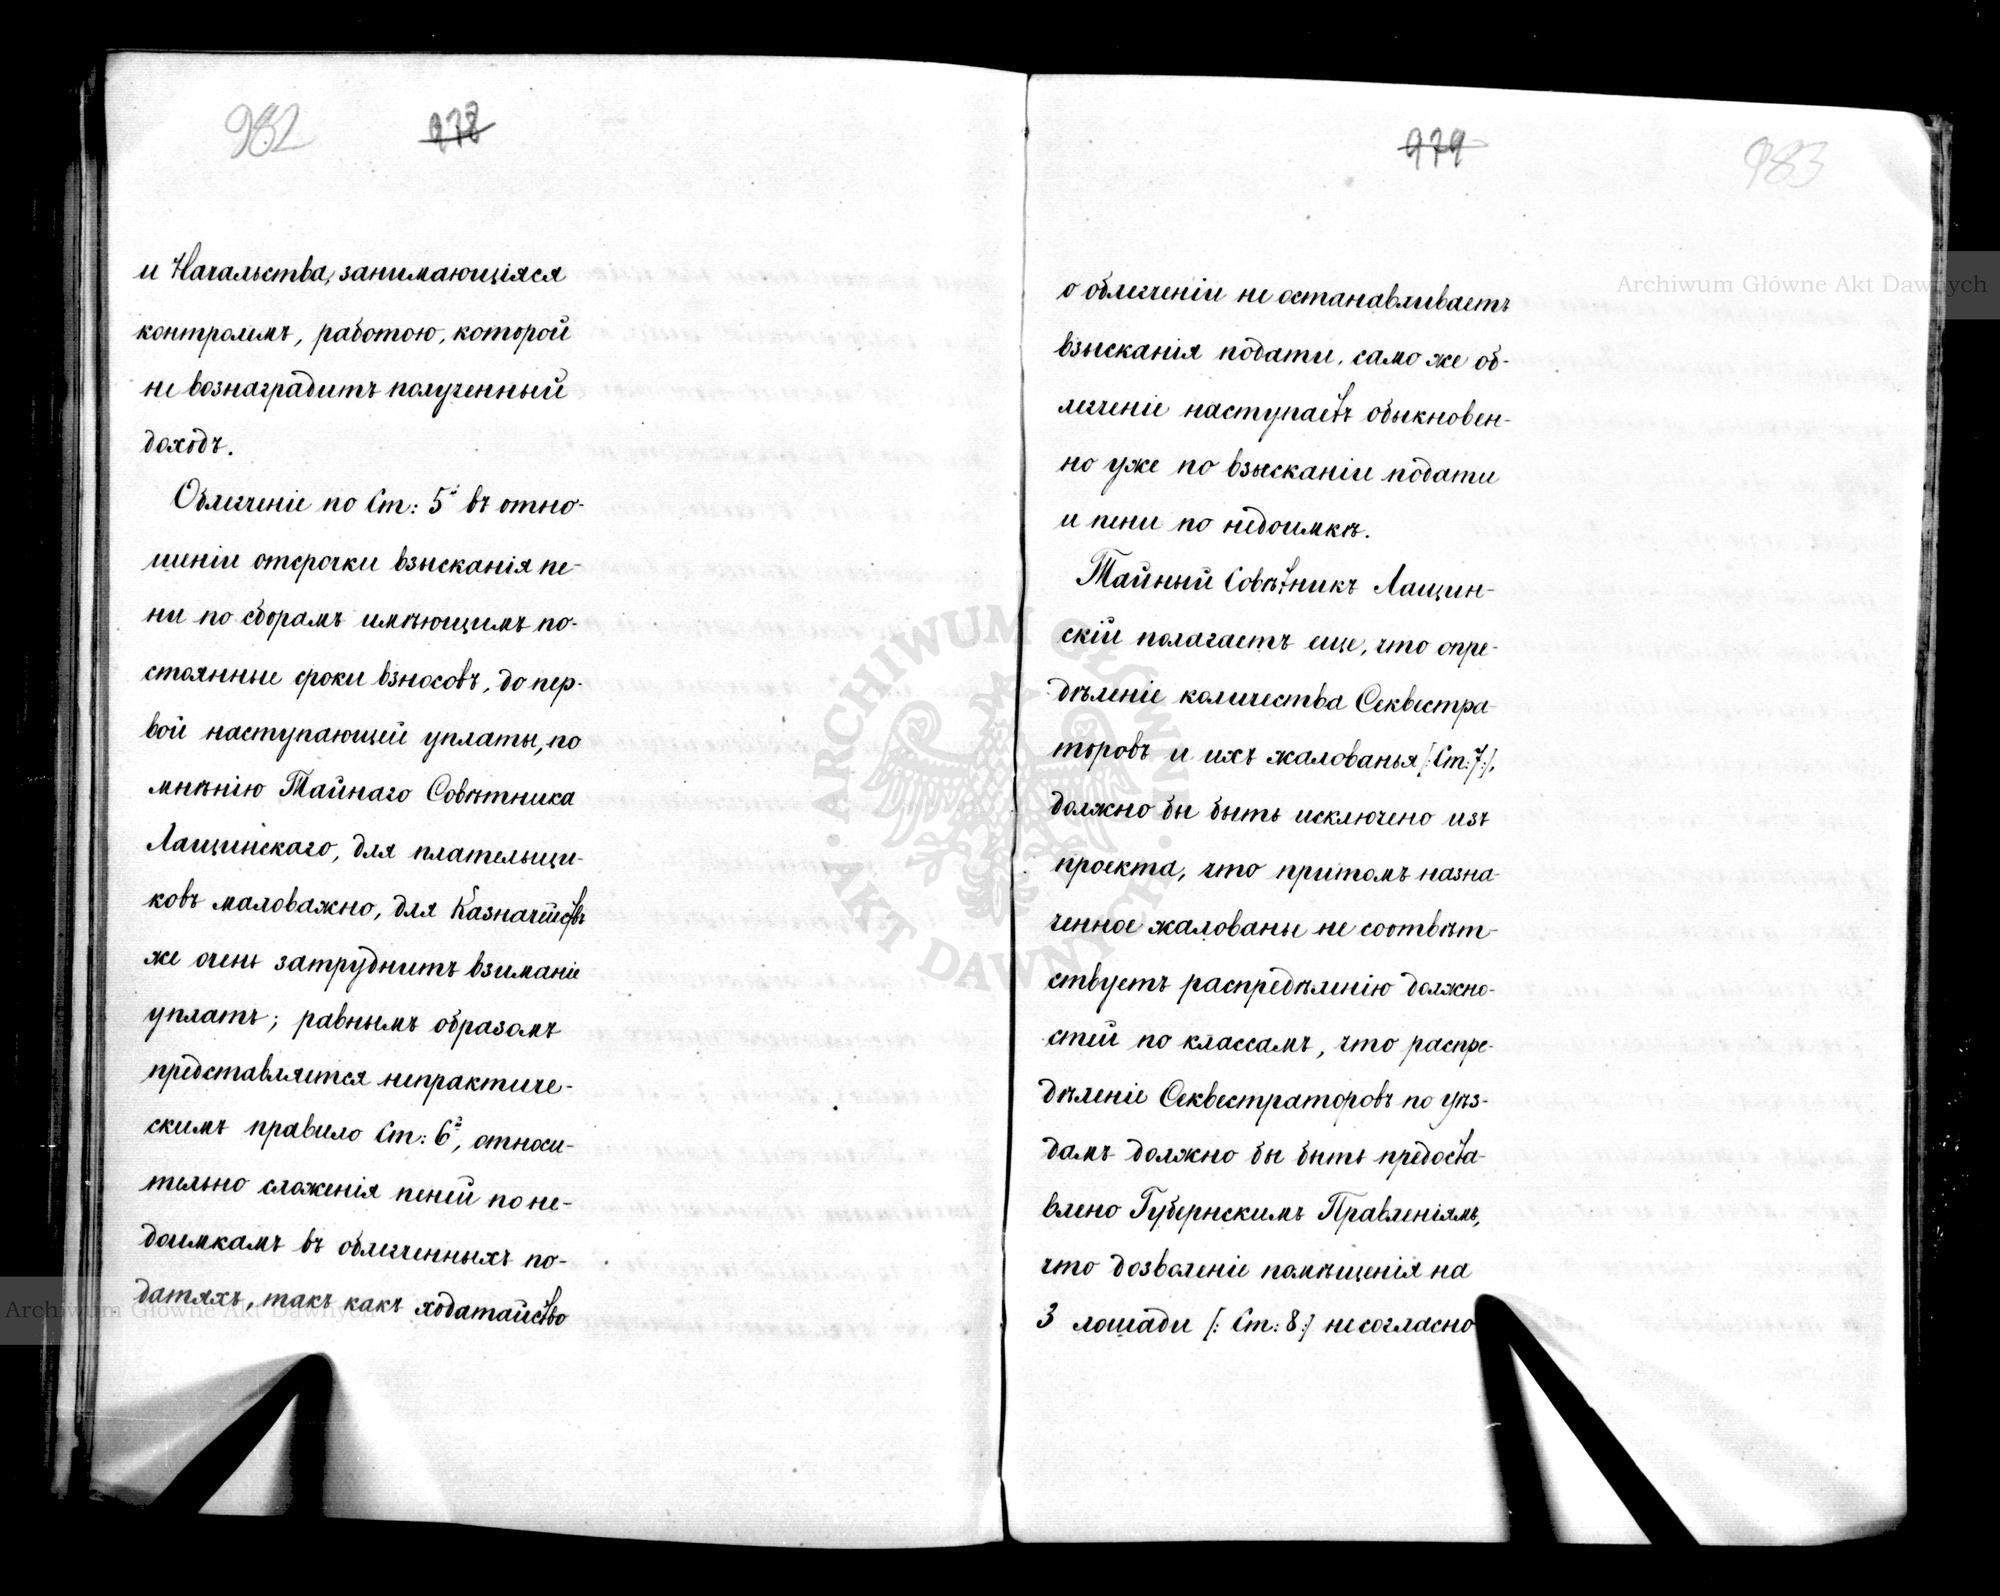 982 978
и Начальства, занимающіяся
контролемъ, работою, которой
не вознаградитъ полученный
доходъ.
Облегченіе по Ст: 5й въ отно-
шеніи отсрочки взысканія пе-
ни по сборамъ имѣющимъ по-
стоянные сроки взносовъ, до пер-
вой наступающей уплаты, по
мнѣнію Тайнаго Совѣтника
Лащинскаго, для плательщи-
ковъ маловажно, для Казначействъ
же очень затруднитъ взиманіе
уплатъ; равнымъ образомъ
представляется непрактиче-
скимъ правило Ст: 6й, относи-
тельно сложенія пеней по не-
доимкамъ въ облегченныхъ по-
датяхъ, такъ какъ ходатайство
979 983
о облегченіи не останавливаетъ
взысканія подати, само же об-
легченіе наступаетъ обыкновен-
но уже по взысканіи подати
и пени по недоимкѣ.
Тайный Совѣтникъ Лащин-
скій полагаетъ еще, что опре-
дѣленіе количества Секвестра-
торовъ и ихъ жалованья [:Ст:7:],
должно бы быть исключено изъ
проекта, что притомъ назна-
ченное жалованье не соотвѣт-
ствуетъ распредѣленію должно-
стей по классамъ, что распре-
дѣленіе Секвестраторовъ по уѣз-
дамъ должно бы быть предоста-
влено Губернскимъ Правленіямъ,
что дозволеніе помѣщенія на
3 лошади [: Ст: 8:] несогласно
Archiwum Główne Akt Dawnych
Archiwum Główne Akt Dawnych
ARCHIWUM GŁÓWNE AKT DAWNYCH